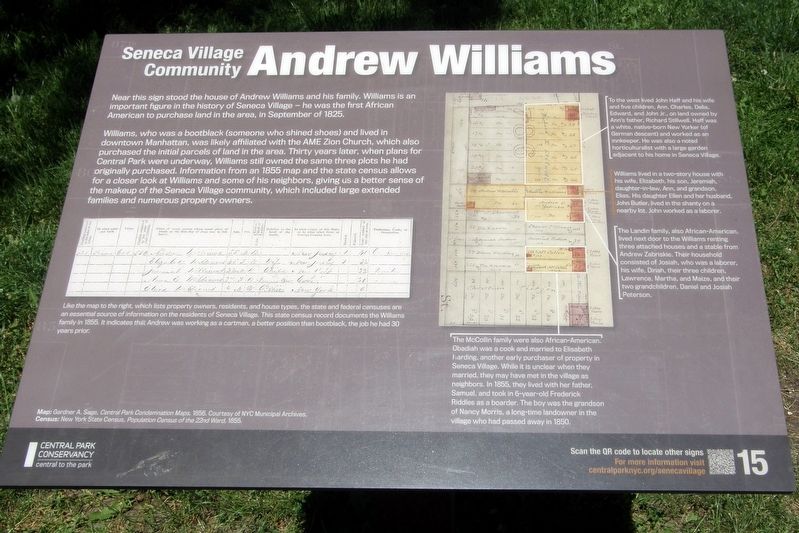 Seneca Village
Community
Andrew Williams
Near this sign stood the house of Andrew Williams and his family. Williams is an
important figure in the history of Seneca Village – he was the first African
American to purchase land in the area, in September of 1825.
Williams, who was a bootblack (someone who shined shoes) and lived in
downtown Manhattan, was likely affiliated with the AME Zion Church, which also
purchased the initial parcels of land in the area. Thirty years later, when plans for
Central Park were underway, Williams still owned the same three plots he had
originally purchased. Information from an 1855 map and the state census allows
for a closer look at Williams and some of his neighbors, giving us a better sense of
the makeup of the Seneca Village community, which included large extended
families and numerous property owners.
Like the map to the right, which lists property owners, residents, and house types, the state and federal censuses are
an essential source of information on the residents of Seneca Village. This state census record documents the Williams
family in 1855. It indicates that Andrew was working as a cartman, a better position than bootblack, the job he had 30
years prior.
Map: Gardner A. Sage, Central Park Condemnation Maps, 1856. Courtesy of NYC Municipal Archives.
Census: New York State Census, Population Census of the 22nd Ward, 1855.
To the west lived John Haff and his wife
and five children, Ann, Charles, Delia,
Edward, and John Jr., on land owned by
Ann's father, Richard Stillwell. Haff was
a white, native-born New Yorker (of
German descent) and worked as an
innkeeper. He was also a noted
horticulturalist with a large garden
adjacent to his home in Seneca Village.
Williams lived in a two-story house with
his wife, Elizabeth, his son, Jeremiah,
daughter-in-law, Ann, and grandson,
Elias. His daughter Ellen and her husband,
John Butler, lived in the shanty on a
nearby lot. John worked as a laborer.
The Landin family, also African-American,
lived next door to the Williams renting
two attached houses and a stable from
Andrew Zabriskie. Their household
consisted of Josiah, who was a laborer,
his wife, Dinah, their three children,
Lawrence, Martha, and Maize, and their
two grandchildren, Daniel and Josiah
Peterson.
The McCollin family were also African-American.
Obadiah was a cook and married to Elisabeth
Harding, another early purchaser of property in
Seneca Village. While it is unclear when they
married, they may have met in the village as
neighbors. In 1855, they lived with her father,
Samuel, and took in 6-year-old Frederick
Riddles as a boarder. The boy was the grandson
of Nancy Morris, a long-time landowner in the
village who had passed away in 1850.
CENTRAL PARK
CONSERVANCY
central to the park
Scan the QR code to locate other signs
For more information visit
centralparknyc.org/senecavillage
15